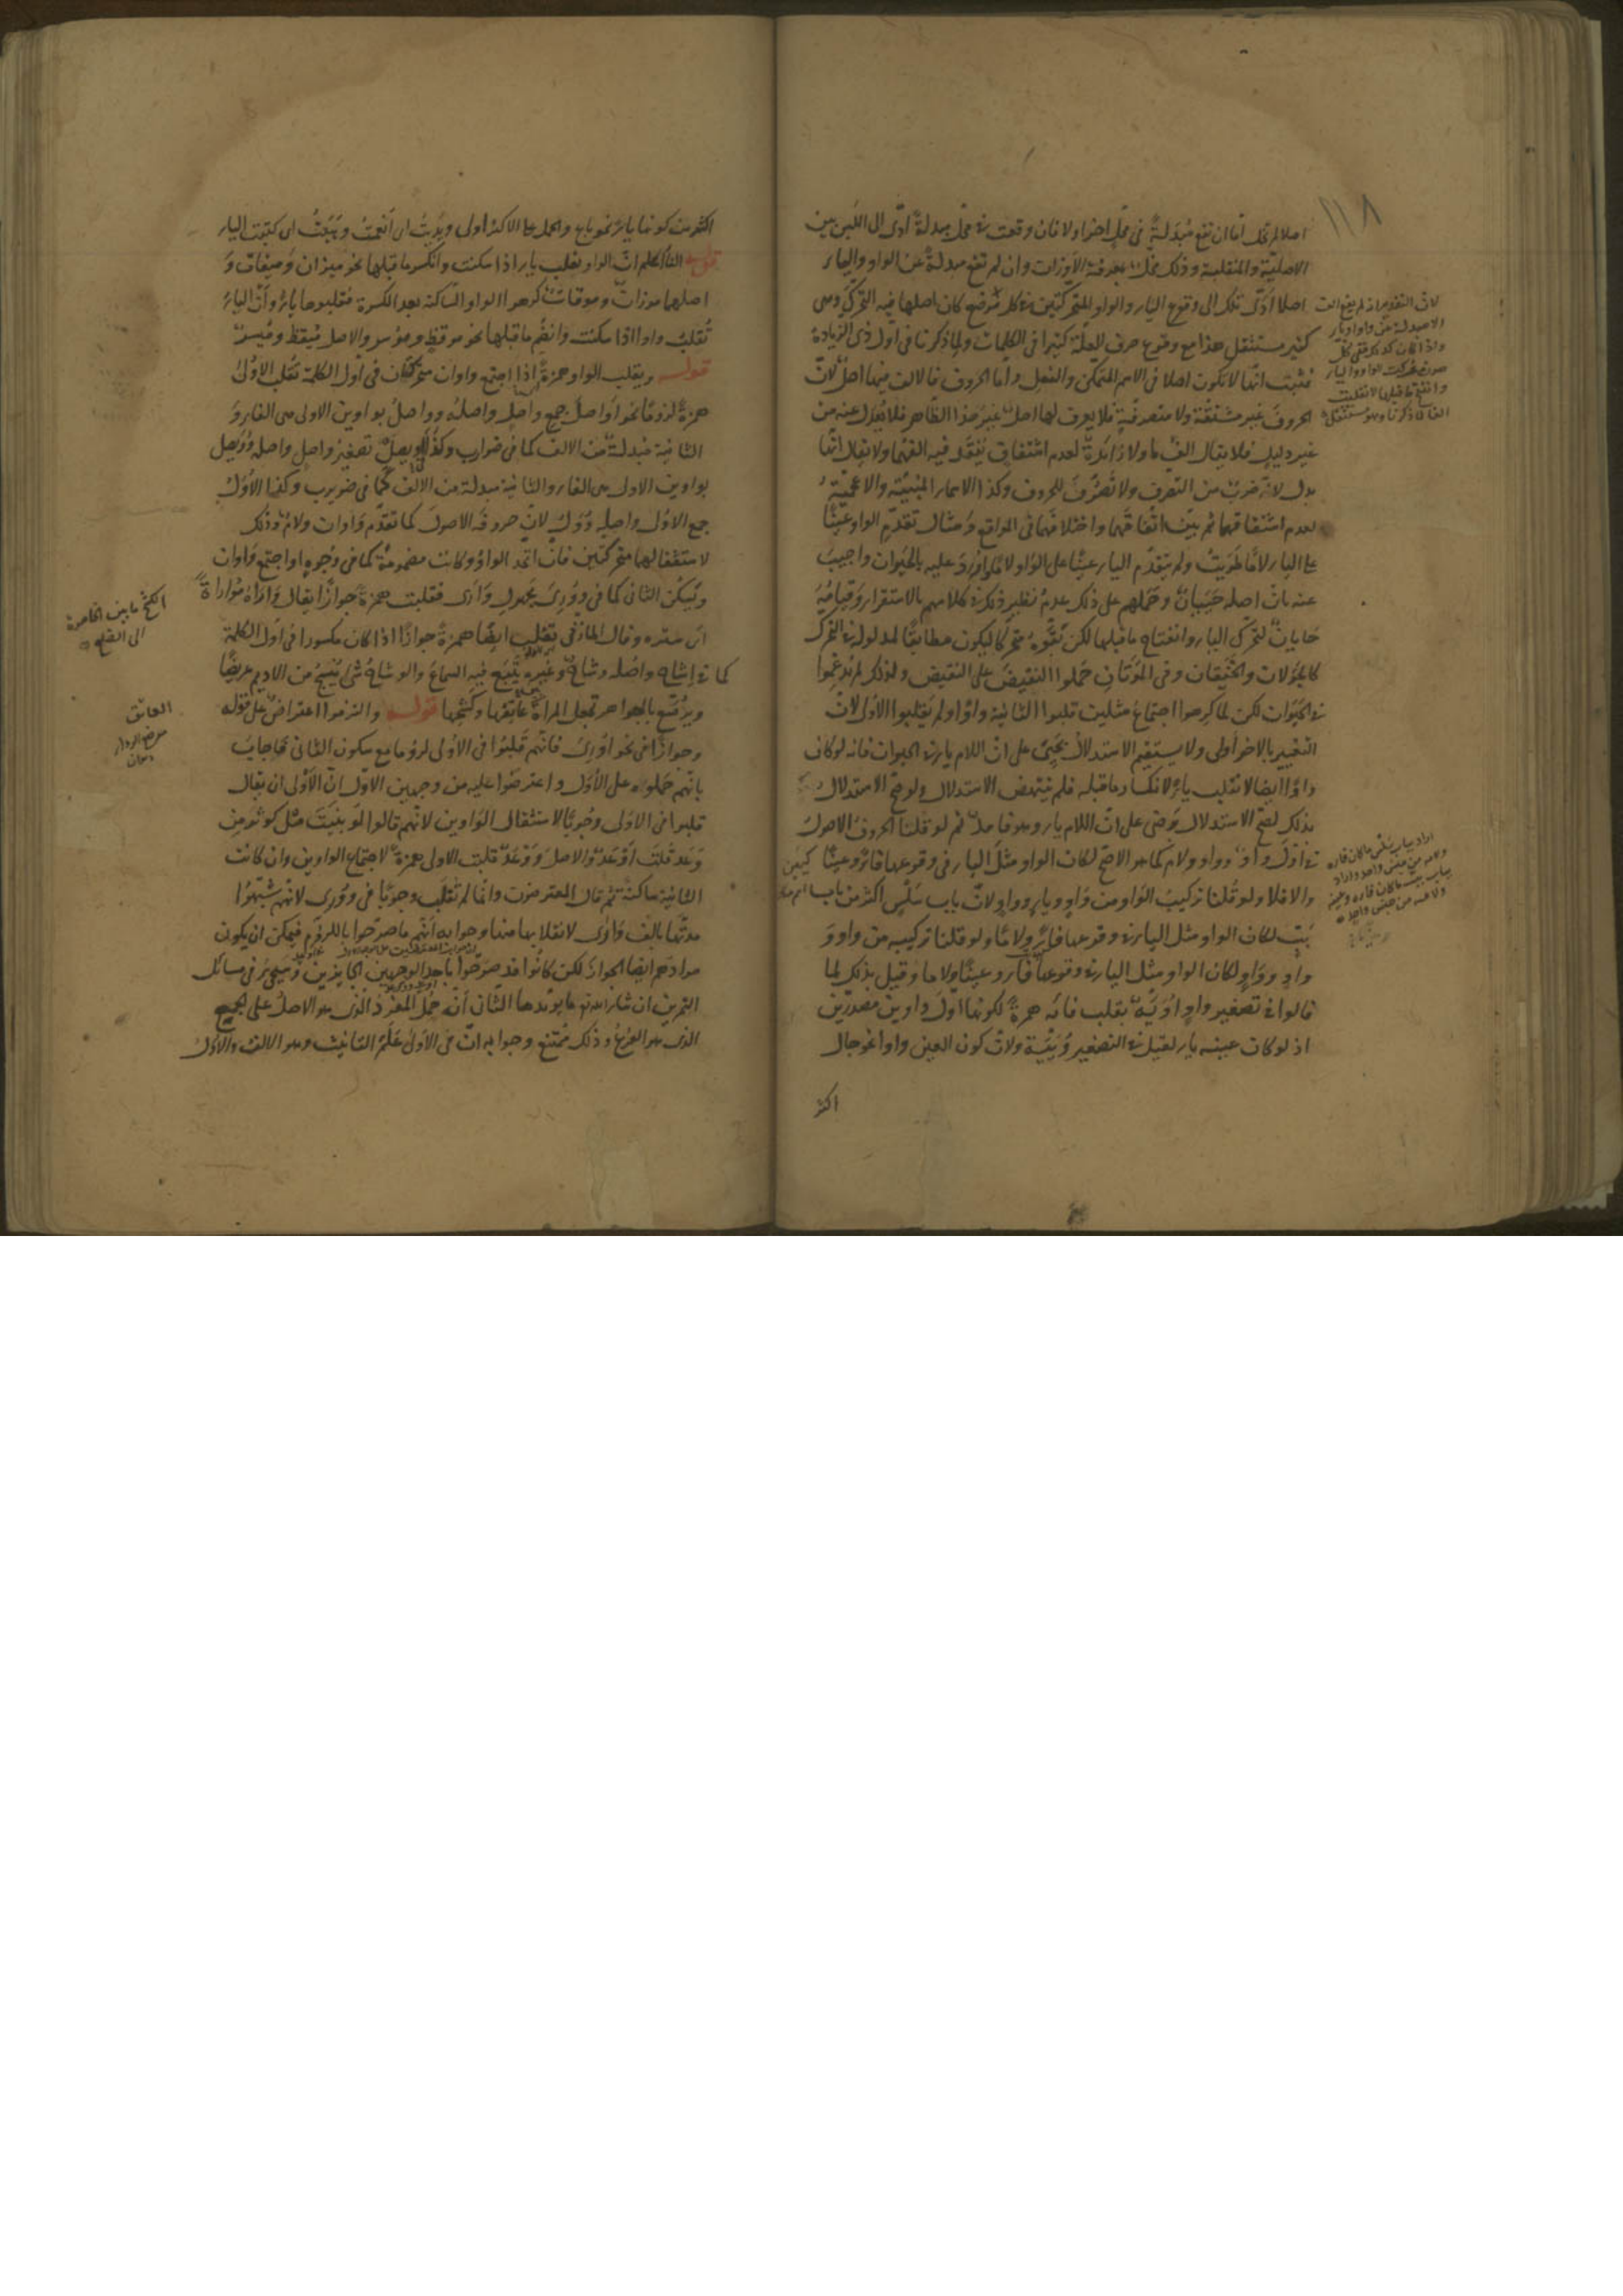 ١١٨
اصلا لم يخل اما ان تقع مبدلة في محل اخر اولا فان وقعت في محل مبدلة ادى الى اللبس بين
الاصلية والمنقلبة وذلك مخل بمعرفة الاوزان وان لم تقع مبدلة عن الواو والياء
اصلا ادى ذلك الى وقوع الياء والواو المتحركتين في كل موضع كان اصلها فيه التحرك وهى
كثير مستثقل هذا مع وقوع حرف العلة كثيرا في الكلمات ولما ذكرنا في اول ذى الزيادة
فثبت انها لا تكون اصلا في الاسم المتمكن والفعل واما الحروف فالالف فيها اصل لان
الحروف غير مشتقة ولا متصرفة فلا يعرف لها اصل غير هذا الظاهر فلا يعدل عنه من
غير دليل فلا يقال الف ما ولا زائدة لعدم اشتقاق يفقد فيه الفهما ولا يقال انها
بدل لانه ضرب من التصرف ولا تصرف للحروف وكذا الاسماء المبنية والاعجمية
لعدم اشتقاقهما ثم بين اتفاقهما واختلافهما في المواقع ومثال تقدم الواو عينا
على الياء لاما طويت ولم يتقدم الياء عينا على الواو لاما واورد عليه بالحيوان واجيب
عنه بان اصله حييان وحملهم على ذلك عدم نظير ذلك في كلامهم بالاستقرار وقياسه
حايان لتحرك الياء وانفتاح ما قبلها لكن نحوه متحركا ليكون مطابقا لمدلوله في التحرك
كالجولان والخفقان وفى الموتان حملوا النقيض على النقيض ولذلك لم يدغموا
في الحيوان لكن لما كرهوا اجتماع مثلين قلبوا الثانية واوا ولم يقلبوا الاولى لان
التغيير بالاخر اولى ولا يستقيم الاستدلال بحيى على ان اللام ياء في الحيوان فانه لو كان
واوا ايضا لانقلب ياء لانكسار ما قبله فلم ينتهض الاستدلال ولو صح الاستدلال
بذلك لصح الاستدلال برضى على ان اللام ياء وهو فاسد ثم لو قلنا الحروف الاصول
في اول واو وواو ولام كما هو الاصح لكان الواو مثل الياء في وقوعها فاء وعينا كيين
والا فلا ولو قلنا تركيب الواو من واو وياء وواو لان باب سلس اكثر من باب
ببّ لكان الواو مثل الياء في وقوعها فاء ولاما ولو قلنا تركيبه من واو و
واو وواو لكان الواو مثل الياء في وقوعها فاء وعينا ولاما وقيل بذلك لما
قالوا في تصغير واو اوية بقلب فائه همزة لكونها اول واوين مصدرين
اذ لو كان عينه ياء لقيل في التصغير وييّة ولان كون العين واوا نحو جال
اكثر
لان التقدير ان لم يقع الف
الا مبدلة من واو او ياء
صورة تحركت الواو والياء
وانفتح ما قبلها لانقلبت
الفا لما ذكرنا وهو مستثقل
اراد بباب سلس ما كان فاؤه
ولامه من جنس واحد واراد
بباب ببّ ما كان فاؤه وعينه
ولامه من جنس واحد
اكثر من كونها ياء نحو باع والحمل على الاكثر اولى ويديت اى انعمت وييّت اى كتبت الياء
قوله الثالث اعلم ان الواو تقلب ياء اذا سكنت وانكسر ما قبلها نحو ميزان وميقات و
اصلهما موزان وموقات كرهوا الواو الساكنة بعد الكسرة فقلبوها ياء وان الياء
تقلب واوا اذا سكنت وانضم ما قبلها نحو موقظ وموسر والاصل ميقظ وميسر
قوله ويقلب الواو همزة اذا اجتمع واوان متحركتان في اول الكلمة تقلب الاولى
همزة لزوما نحو اواصل جمع واصل واصله وواصل بواوين الاولى هى الفاء و
الثانية مبدلة من الالف كما في ضوارب وكذا اويصل تصغير واصل واصله وويصل
بواوين الاولى هى الفاء والثانية مبدلة من الالف كما في ضويرب وكذا الاول
جمع الاولى واصله وول لان حروفه الاصول كما تقدم واوان ولام وذلك
لاستثقالهما متحركتين فان اتحد الواو وكانت مضمومة كما في وجوه او اجتمع واوان
وسكن الثانى كما في وورى مجهول وارى فقلبت همزة جوازا يقال واراه مواراة
اى ستره وقال المازنى تقلب ايضا همزة جوازا اذا كان مكسورا في اول الكلمة
كما في اشاح واصله وشاح وغيره يتبع فيه السماع والوشاح شئ ينسج من الاديم عريضا
ويرصع بالجواهر تجعل المراة على عاتقها وكشحها قوله والتزموا اعتراض على قوله
وجوازا في نحو اورى فانهم قلبوا في الاولى لزوما مع سكون الثانى فاجاب
بانهم حملوه على الاول واعترضوا عليه من وجهين الاول ان الاولى ان يقال
قلبوا في الاولى وجوبا لاستثقال الواوين لانهم قالوا لو بنيت مثل كوثر من
وعد قلت اوعد والاصل ووعد قلبت الاولى همزة لاجتماع الواوين وان كانت
الثانية ساكنة ثم قال المعترضون وانما لم تقلب وجوبا في وورى لانهم شبهوا
مدتها بالف وارى لانقلابها منها وجوابه انهم ما صرحوا باللزوم فيمكن ان يكون
مرادهم ايضا الجواز لكن كانوا قد صرحوا باحد الوجهين الجايزين وسيجئ في مسائل
التمرين ان شاء الله تعالى ما يؤيدها الثانى انه حمل المفرد الذى هو الاصل على الجمع
الذى هو الفرع وذلك ممتنع وجوابه ان في الاولى علم التانيث وهو الالف والاول
الكشح ما بين الخاصرة
الى الضلع
العاتق
موضع الرداء